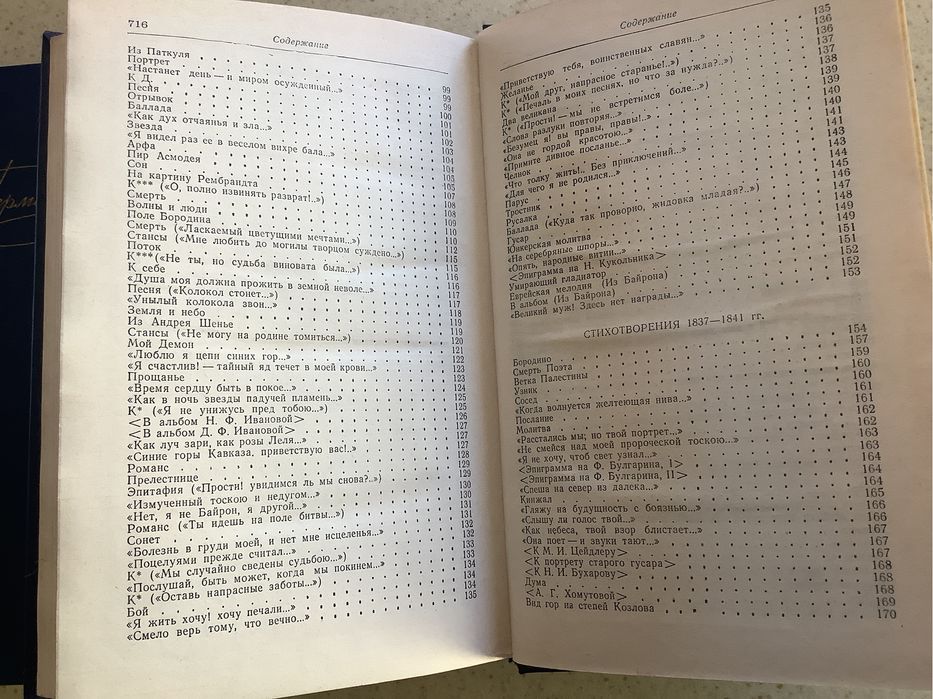 716
Содержание
Из Паткуля 99
Портрет 99
«Настанет день — и миром осужденный...» 99
К Д. 100
Песня 101
Отрывок 101
Баллада 102
«Как дух отчаянья и зла...» 103
Звезда 104
«Я видел раз ее в веселом вихре бала...» 104
Арфа 105
Пир Асмодея 105
Сон 107
На картину Рембрандта 108
К*** («О, полно извинять разврат!..») 108
Смерть 109
Волны и люди 110
Поле Бородина 110
Смерть («Ласкаемый цветущими мечтами...») 112
Стансы («Мне любить до могилы творцом суждено...») 115
Поток 115
К*** («Не ты, но судьба виновата была...») 116
К себе 116
«Душа моя должна прожить в земной неволе...» 117
Песня («Колокол стонет...») 117
«Унылый колокола звон...» 118
Земля и небо 119
Из Андрея Шенье 119
Стансы («Не могу на родине томиться...») 120
Мой Демон 121
«Люблю я цепи синих гор...» 122
«Я счастлив! — тайный яд течет в моей крови...» 123
Прощанье 123
«Время сердцу быть в покое...» 124
«Как в ночь звезды падучей пламень...» 125
К* («Я не унижусь пред тобою...») 125
<В альбом Н. Ф. Ивановой> 126
<В альбом Д. Ф. Ивановой> 127
«Как луч зари, как розы Леля...» 127
«Синие горы Кавказа, приветствую вас!..» 127
Романс 128
Прелестнице 129
Эпитафия («Прости! увидимся ль мы снова?..») 129
«Измученный тоскою и недугом...» 130
«Нет, я не Байрон, я другой...» 130
Романс («Ты идешь на поле битвы...») 131
Сонет 131
«Болезнь в груди моей, и нет мне исцеленья...» 132
«Поцелуями прежде считал...» 132
К* («Мы случайно сведены судьбою...») 133
«Послушай, быть может, когда мы покинем...» 133
К* («Оставь напрасные заботы...») 134
Бой 134
«Я жить хочу! хочу печали...» 134
«Смело верь тому, что вечно...» 135
Содержание
«Приветствую тебя, воинственных славян...» 135
Желанье 136
К* («Мой друг, напрасное старанье!..») 136
К* («Печаль в моих песнях, но что за нужда?..») 137
Два великана 137
К* («Прости! — мы не встретимся боле...») 138
«Слова разлуки повторяя...» 139
«Безумец я! вы правы, правы!..» 139
«Она не гордой красотою...» 140
«Примите дивное посланье...» 140
Челнок 141
«Что толку жить!.. Без приключений...» 141
«Для чего я не родился...» 143
Парус
Тростник 144
Русалка 145
Баллада («Куда так проворно, жидовка младая?..») 146
Гусар 147
Юнкерская молитва 148
«На серебряные шпоры...» 149
«Опять, народные витии...» 149
<Эпиграмма на Н. Кукольника> 151
Умирающий гладиатор 151
Еврейская мелодия (Из Байрона) 152
В альбом (Из Байрона) 152
«Великий муж! Здесь нет награды...» 153
СТИХОТВОРЕНИЯ 1837—1841 гг.
Бородино 154
Смерть Поэта 157
Ветка Палестины 159
Узник 160
Сосед 160
«Когда волнуется желтеющая нива...» 161
Послание 161
Молитва 162
«Расстались мы; но твой портрет...» 162
«Не смейся над моей пророческой тоскою...» 163
«Я не хочу, чтоб свет узнал...» 163
<Эпиграмма на Ф. Булгарина, I> 164
<Эпиграмма на Ф. Булгарина, II> 164
«Спеша на север из далека...» 164
Кинжал 165
«Гляжу на будущность с боязнью...» 166
«Слышу ли голос твой...» 166
«Как небеса, твой взор блистает...» 167
«Она поет — и звуки тают...» 167
<К М. И. Цейдлеру> 167
<К портрету старого гусара> 168
<К Н. И. Бухарову> 168
Дума 168
<А. Г. Хомутовой> 169
Вид гор из степей Козлова 170